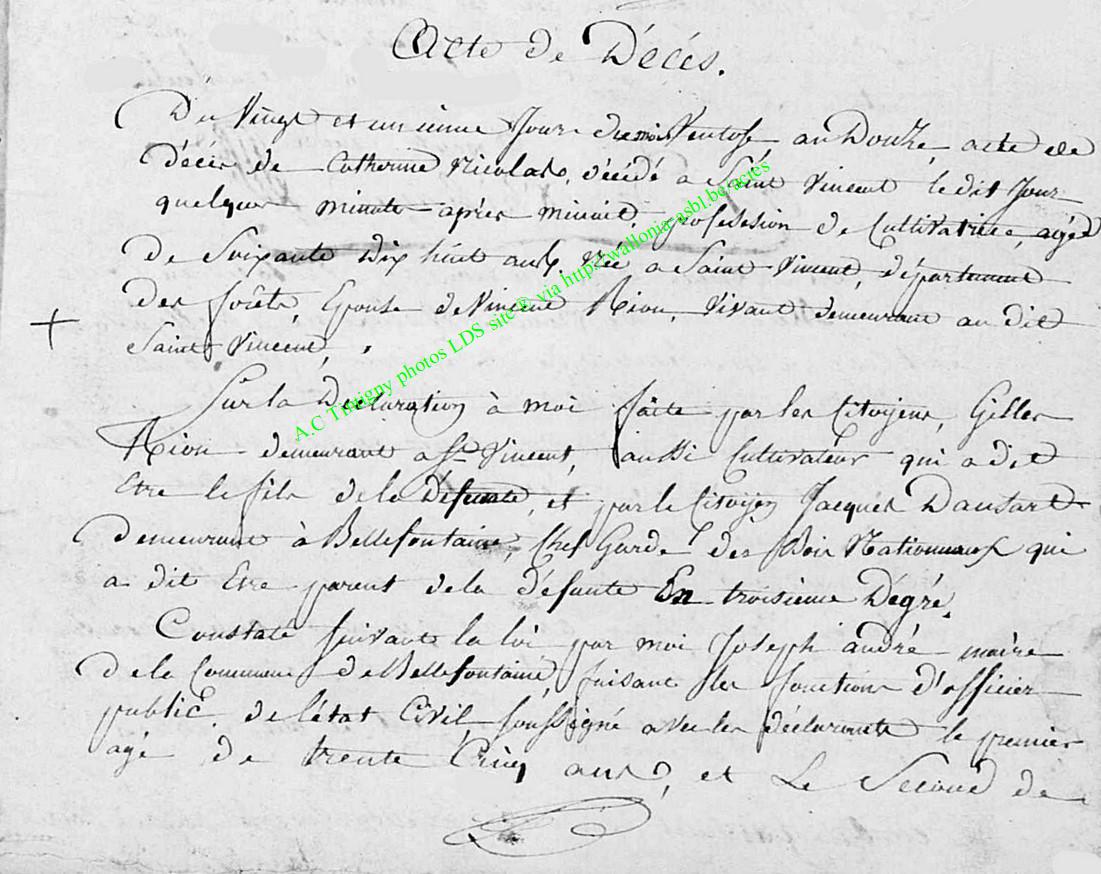 Acte de Décés.
Du Vingt et unieme Jour du mois Ventose an Douze, acte de
décés de Catherine Nicolas, décédé a Saint Vincent ledit Jour
quelques minute après minuit, profession de Cultivatrice, agéé
de Soixante dix huit ans, née a Saint Vincent, département
des forêts, Epouse de Vincent Rion, vivant demeurant au dit
Saint Vincent,
Sur la Déclaration à moi faite par les Citoyens, Gilles
Rion demeurant a St Vincent, aussi Cultivateur qui a dit
Etre le fils de la Défunte, et par le Citoyen Jacques Dansart
demeurant à Bellefontaine, Chef Garde des Bois Nationnaux qui
a dit Etre parent de la défunte En troisieme Dégré.
Constaté suivant la loi par moi Joseph andré maire
de la Commune de Bellefontaine, faisant les fonctions d'officier
public de l'état Civil, soussigné avec les déclarants le premier
agé de trente Cinq ans, et Le Second de
A.C Tintigny photos LDS site® via http://wallonia-asbl.be/actes